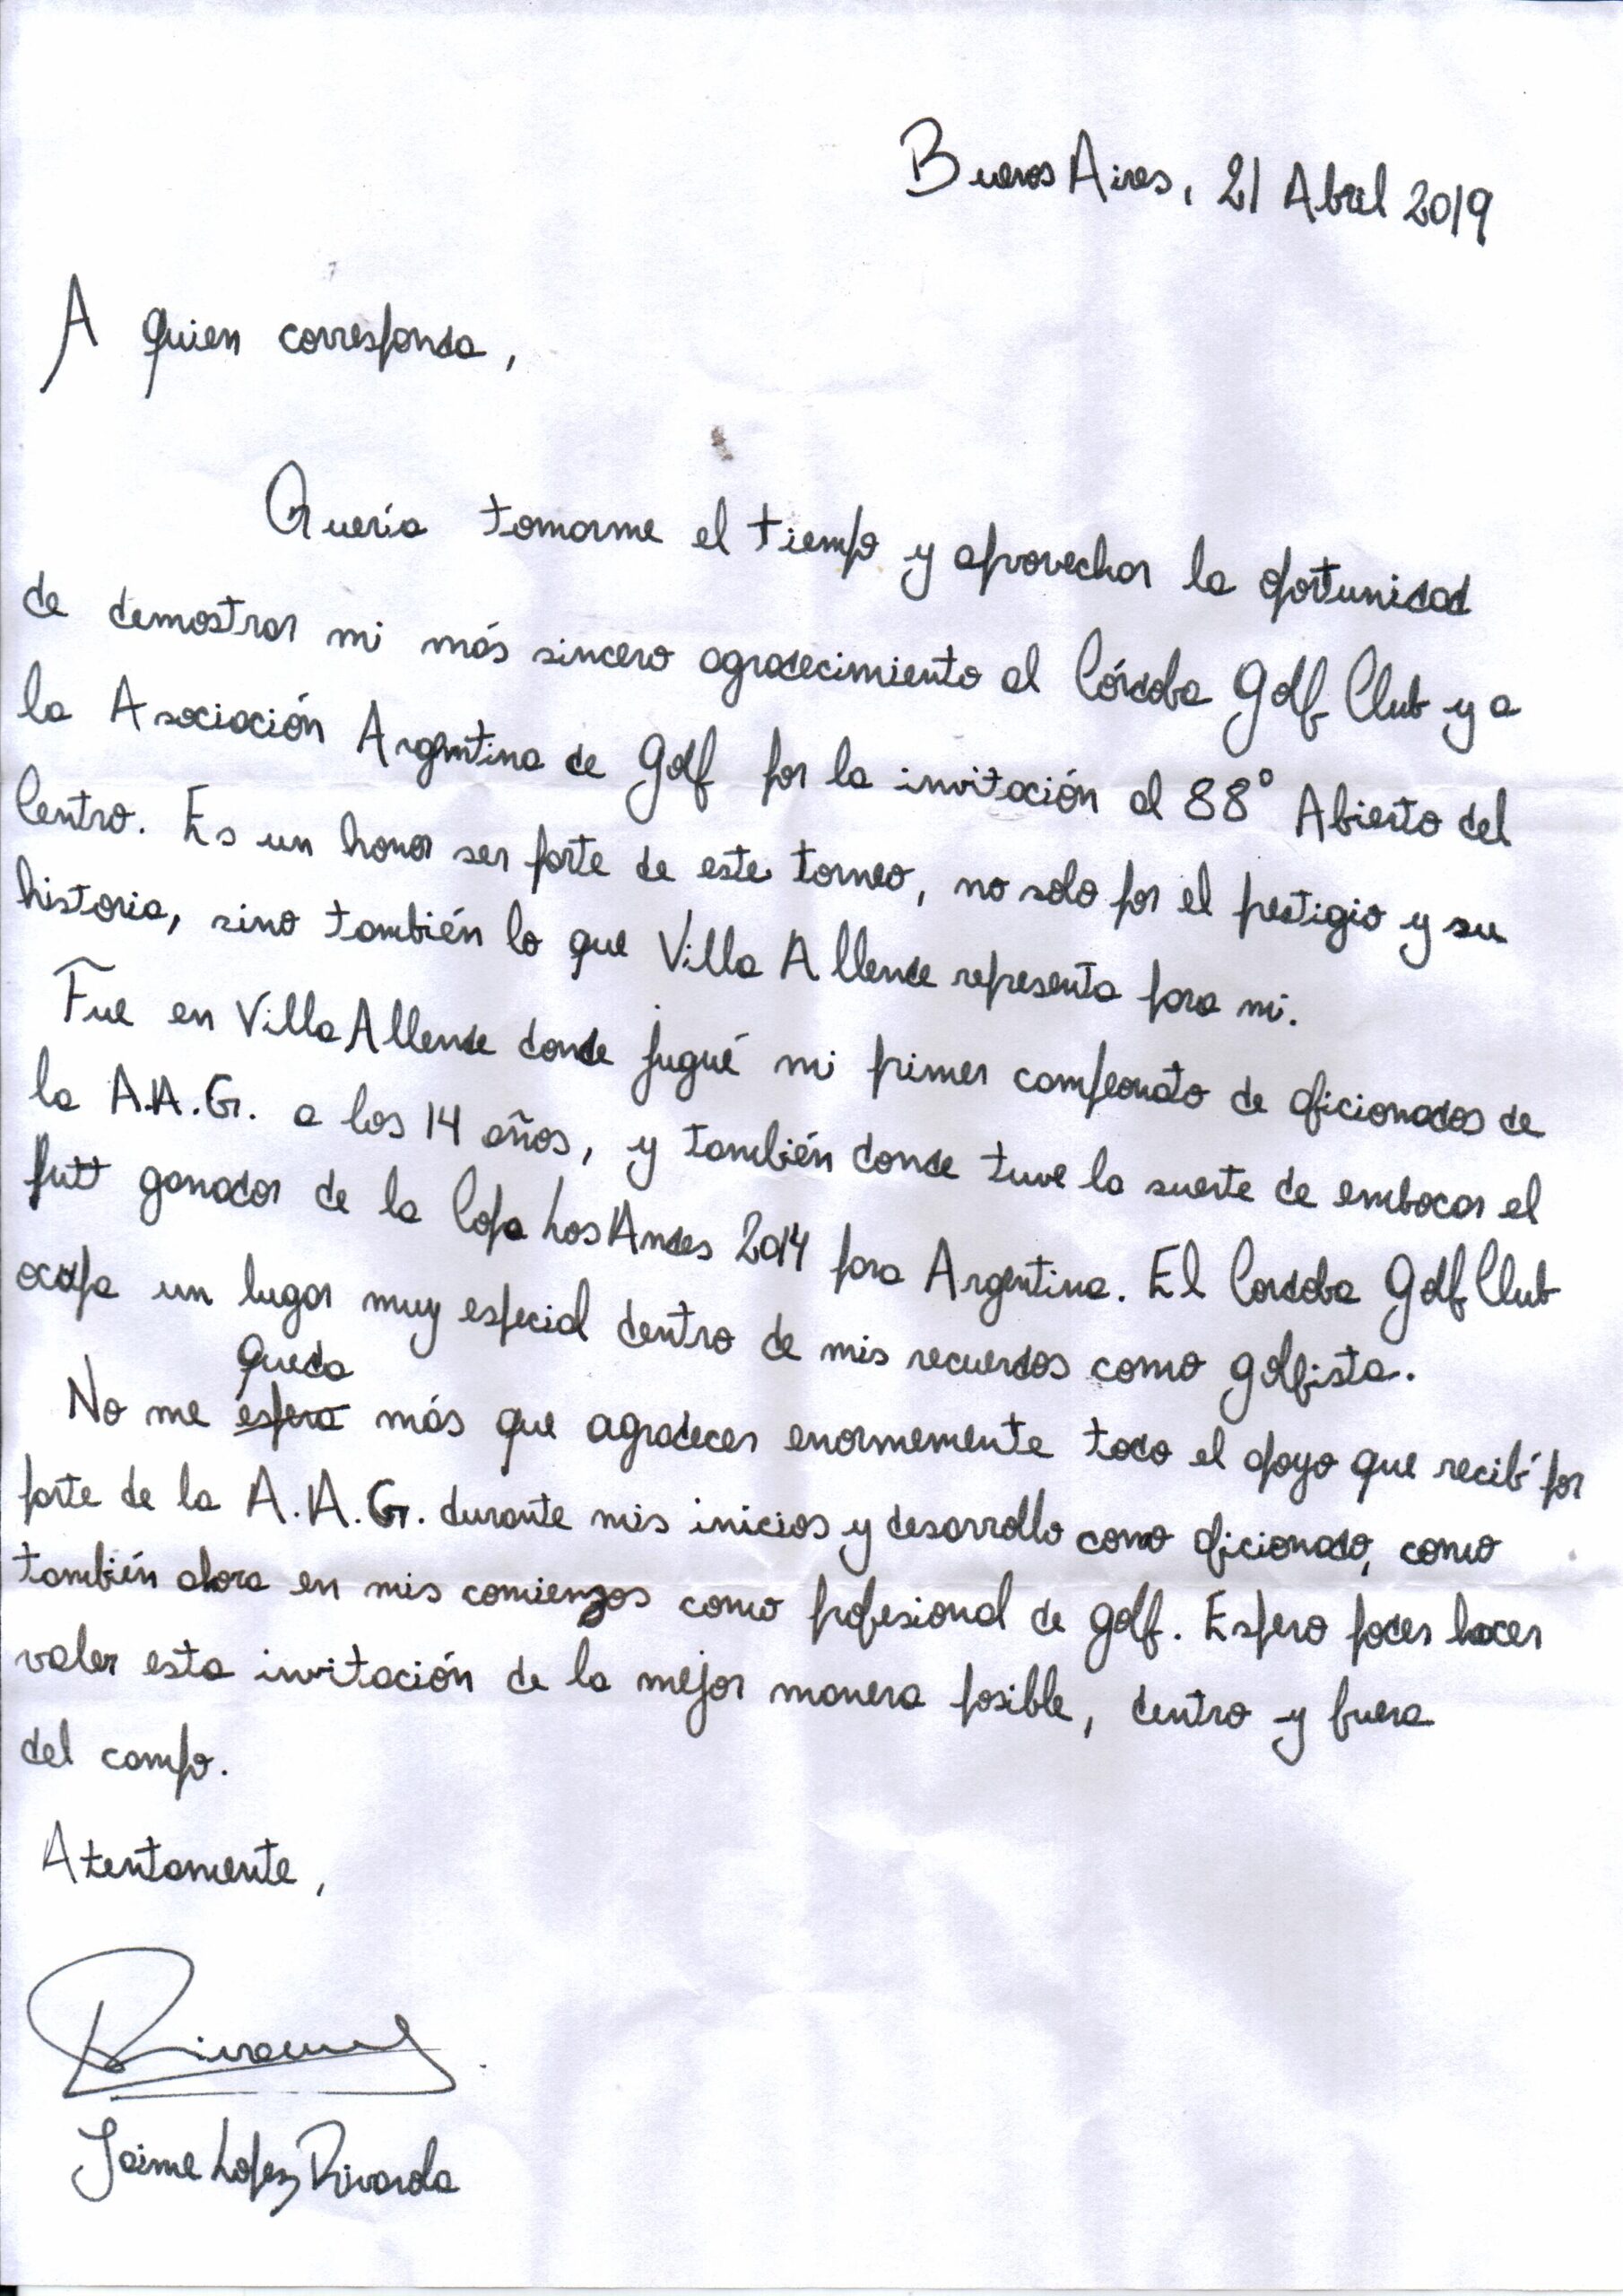 Buenos Aires, 21 Abril 2019
A quien corresponda,
Quería tomarme el tiempo y aprovechar la oportunidad
de demostrar mi más sincero agradecimiento al Córdoba Golf Club y a
la Asociación Argentina de Golf por la invitación al 88° Abierto del
Centro. Es un honor ser parte de este torneo, no solo por el prestigio y su
historia, sino también lo que Villa Allende representa para mi.
Fue en Villa Allende donde jugué mi primer campeonato de aficionados de
la A.A.G. a los 14 años, y también donde tuve la suerte de embocar el
putt ganador de la Copa Los Andes 2014 para Argentina. El Cordoba Golf Club
ocupa un lugar muy especial dentro de mis recuerdos como golfista.
queda
No me espera más que agradecer enormemente todo el apoyo que recibí por
parte de la A.A.G. durante mis inicios y desarrollo como aficionado, como
también ahora en mis comienzos como profesional de golf. Espero poder hacer
valer esta invitación de la mejor manera posible, dentro y fuera
del campo.
Atentamente,
Jaime López Rivarola